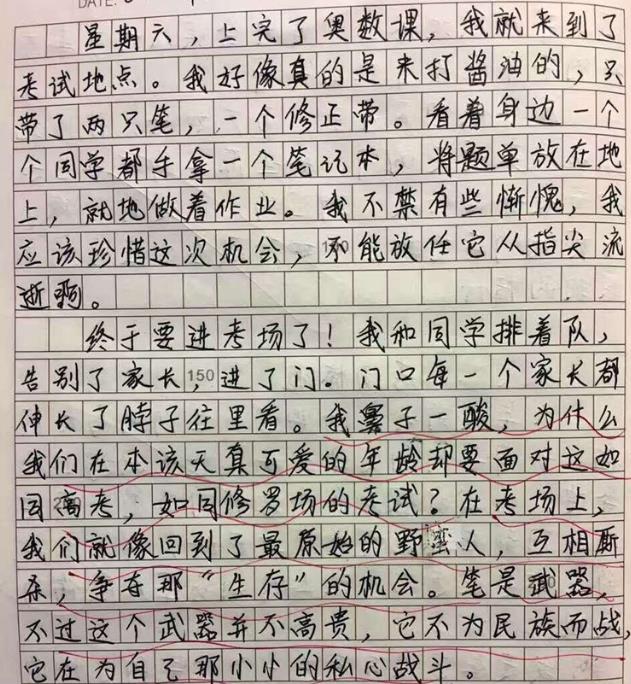 DATE:
星期六，上完了奥数课，我就来到了
考试地点。我好像真的是来打酱油的，只
带了两只笔，一个修正带。看着身边一个
个同学都手拿一个笔记本，将题单放在地
上，就地做着作业。我不禁有些惭愧，我
应该珍惜这次机会，不能放任它从指尖流
逝啊。
终于要进考场了！我和同学排着队，
告别了家长，150进了门。门口每一个家长都
伸长了脖子往里看。我鼻子一酸，为什么
我们在本该天真可爱的年龄却要面对这如
同高考，如同修罗场的考试？在考场上，
我们就像回到了最原始的野蛮人，互相厮
杀，争夺那“生存”的机会。笔是武器，
不过这个武器并不高贵，它不为民族而战，
它在为自己那小小的私心战斗。